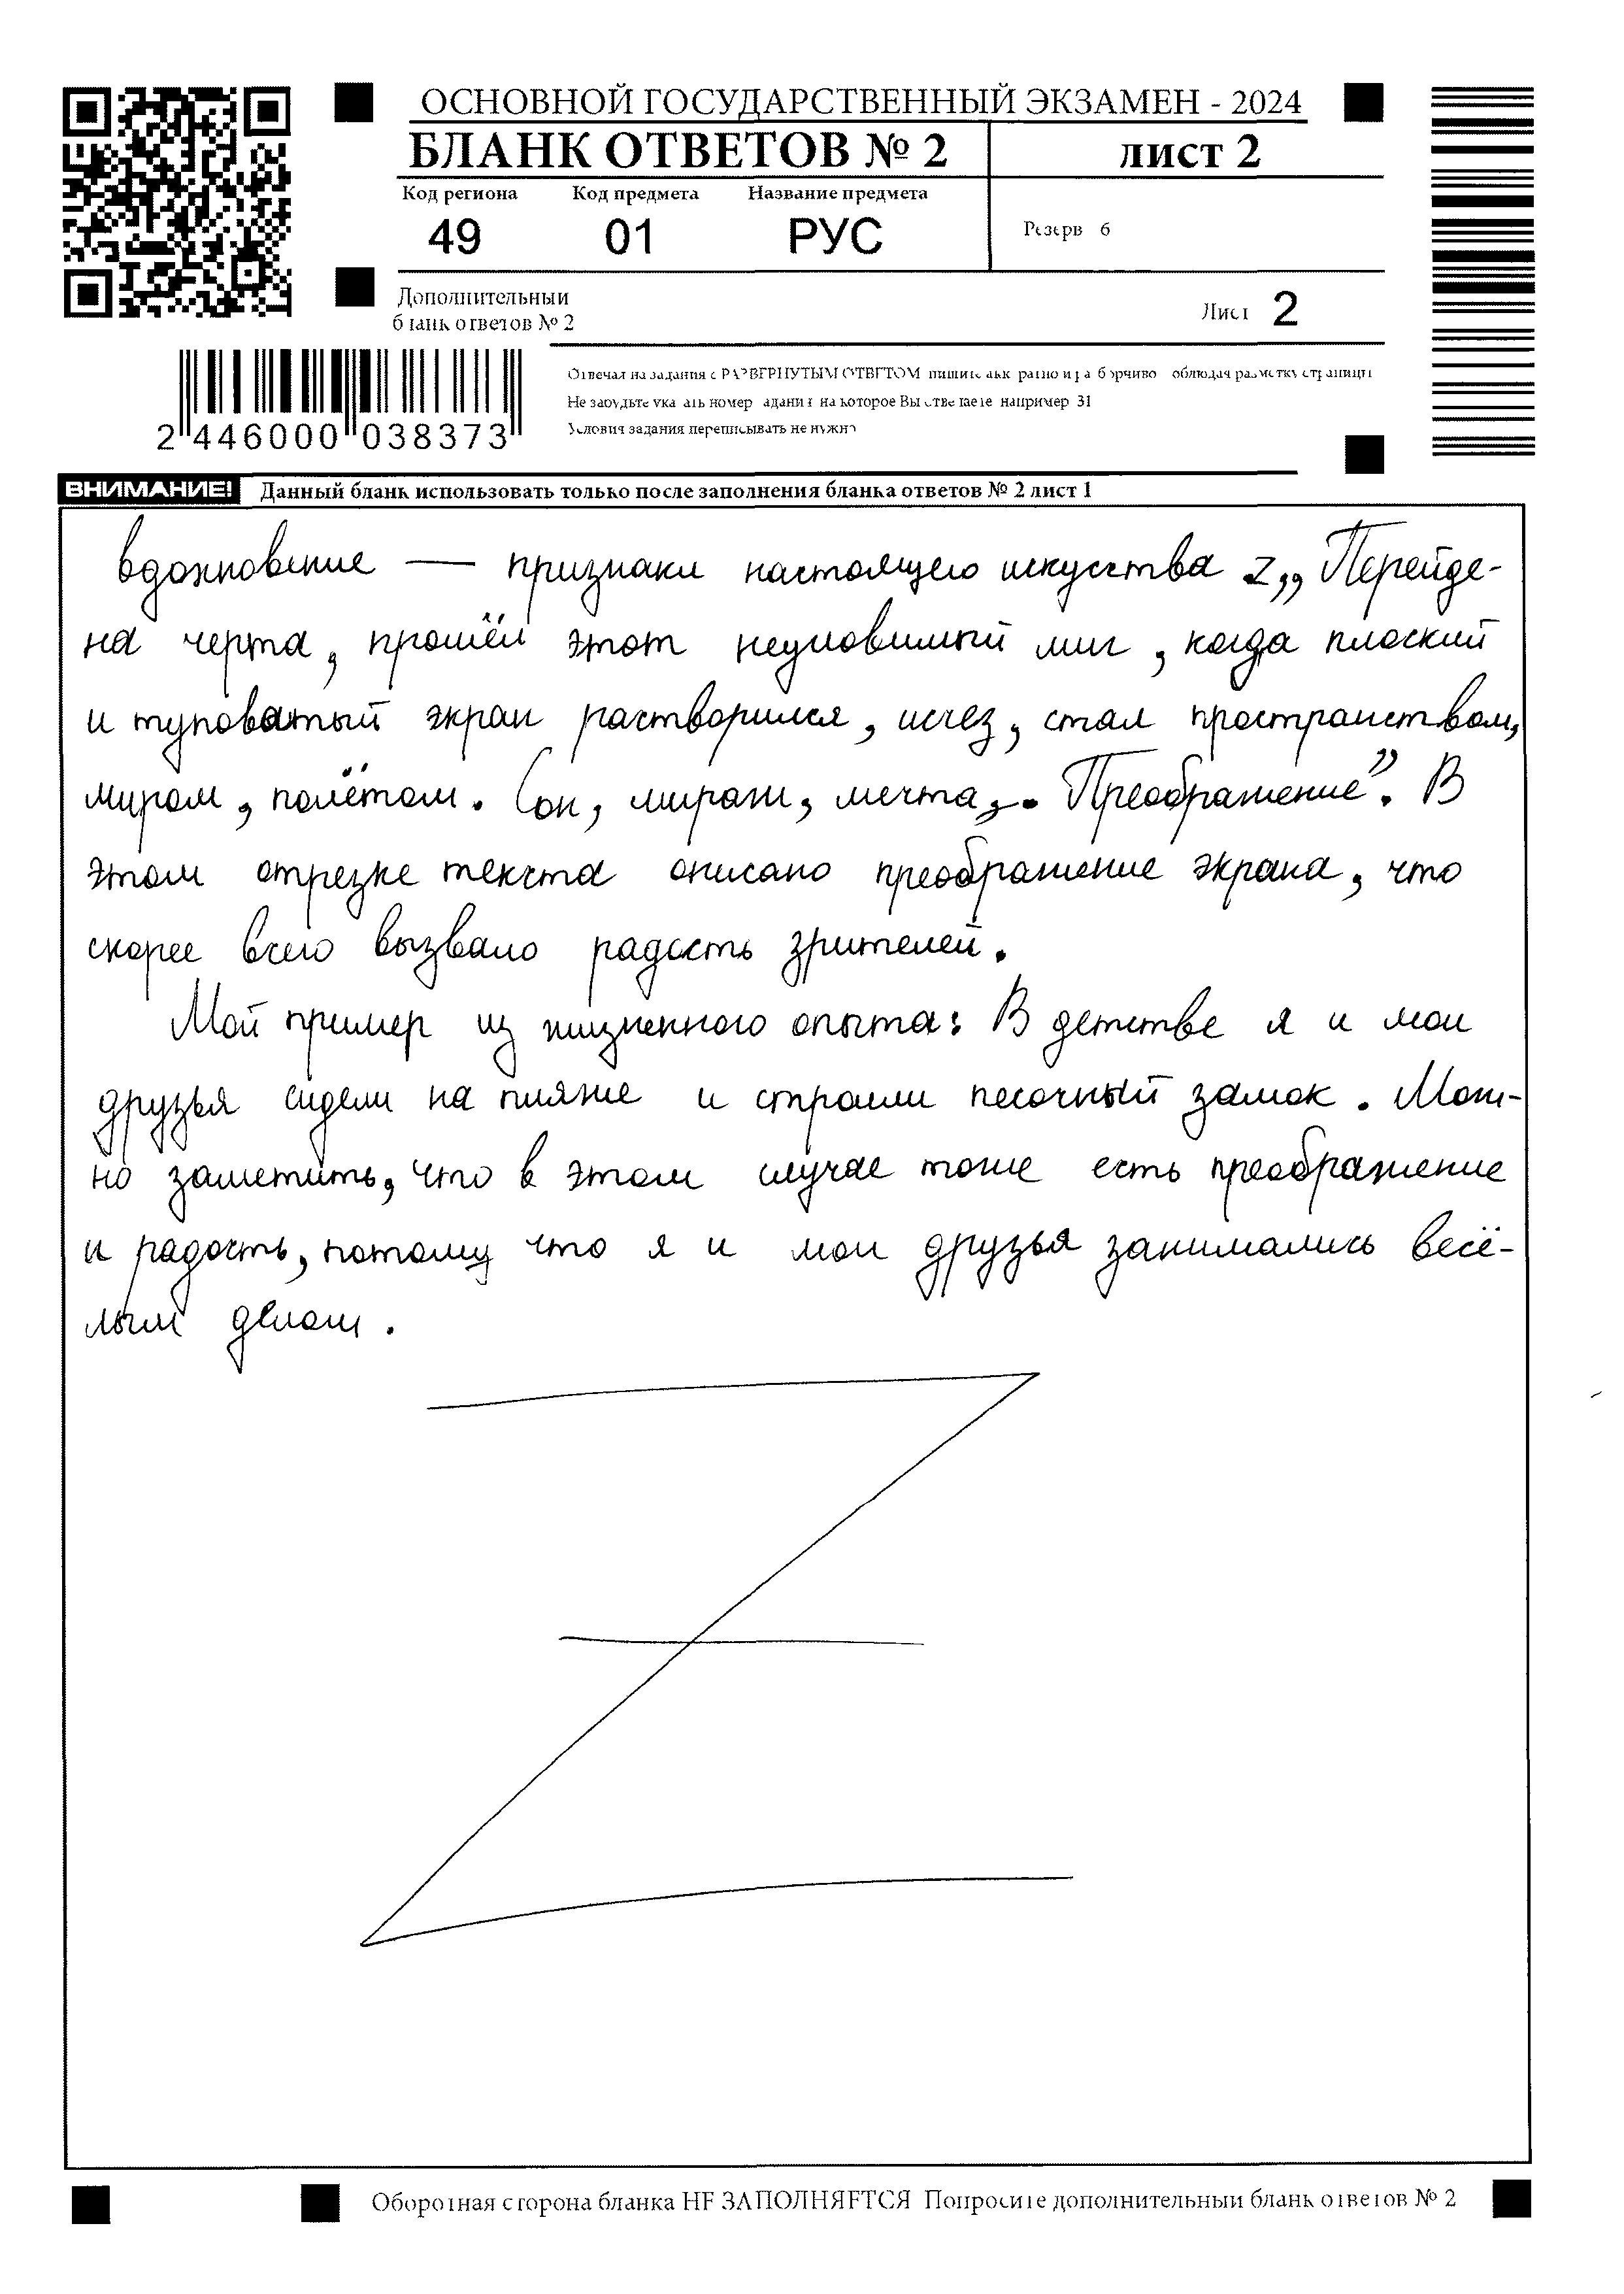 ОСНОВНОЙ ГОСУДАРСТВЕННЫЙ ЭКЗАМЕН - 2024
БЛАНК ОТВЕТОВ № 2
ЛИСТ 2
Код региона Код предмета Название предмета
49 01 РУС
Резерв 6
Дополнительный
бланк ответов № 2
Лист 2
Отвечая на задания с РАЗВЕРНУТЫМ ОТВЕТОМ пишите аккуратно и разборчиво соблюдая разметку страницы
Не забудьте указать номер задания на которое Вы отвечаете например 31
Условия задания переписывать не нужно
2 446000 038373
ВНИМАНИЕ! Данный бланк использовать только после заполнения бланка ответов № 2 лист 1
вдохновение — признаки настоящего искусства „Перейде-
на черта, прошёл этот неуловимый миг, когда плоский
и туповатый экран растворился, исчез, стал пространством,
миром, полётом. Сон, мираж, мечта. Преображение”. В
этом отрезке текста описано преображение экрана, что
скорее всего вызвало радость зрителей.
Мой пример из жизненного опыта: В детстве я и мои
друзья сидели на пляже и строили песочный замок. Мож-
но заметить, что в этом случае тоже есть преображение
и радость, потому что я и мои друзья занимались весё-
лым делом.
Оборотная сторона бланка НЕ ЗАПОЛНЯЕТСЯ Попросите дополнительный бланк ответов № 2